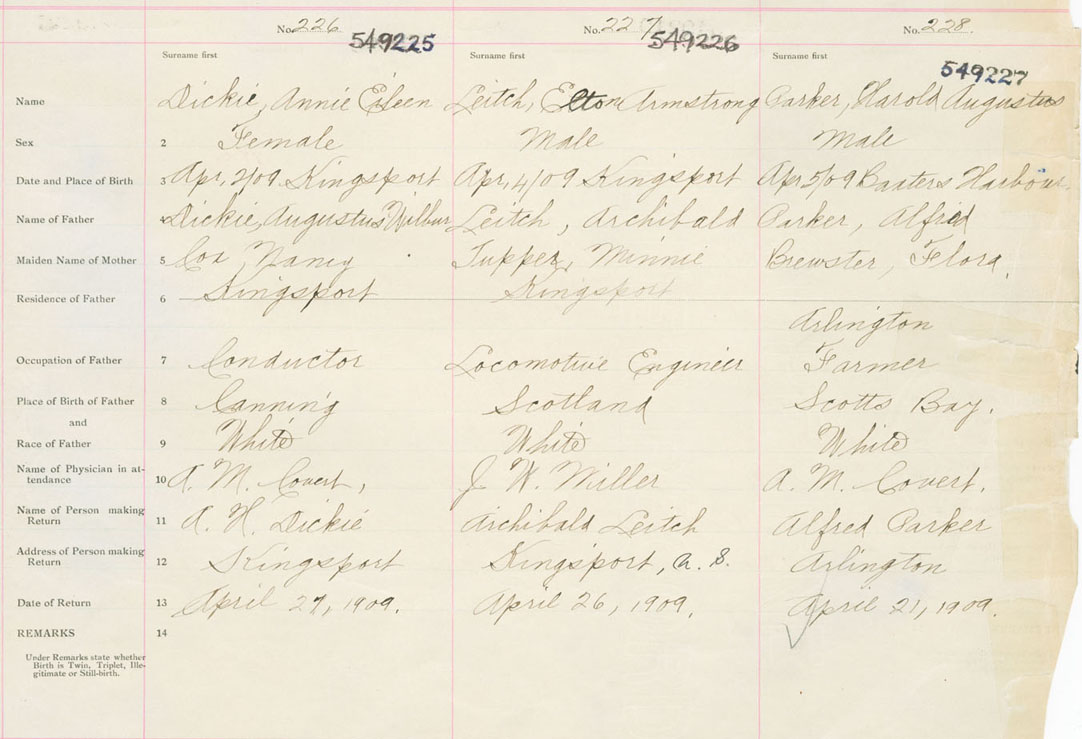 No. 226 No. 227 No. 228.
549225 549226 549227
Surname first Surname first Surname first
Name Dickie, Annie Eileen Leitch, Elton Armstrong Parker, Harold Augustus
Sex 2 Female Male Male
Date and Place of Birth 3 Apr, 2/09 Kingsport Apr, 4/09 Kingsport Apr 5/09 Baxters Harbour
Name of Father 4 Dickie, Augustus Wilbur Leitch, Archibald Parker, Alfred
Maiden Name of Mother 5 Cox, Nancy Tupper, Minnie Brewster, Flora.
Residence of Father 6 Kingsport Kingsport
Arlington
Occupation of Father 7 Conductor Locomotive Engineer Farmer
Place of Birth of Father 8 Canning Scotland Scotts Bay.
and
Race of Father 9 White White White
Name of Physician in at-
tendance 10 A. M. Covert, J. W. Miller A. M. Covert.
Name of Person making
Return 11 A. W. Dickie Archibald Leitch Alfred Parker
Address of Person making
Return 12 Kingsport Kingsport, N. S. Arlington
Date of Return 13 April 27, 1909. April 26, 1909. April 21, 1909.
REMARKS 14
Under Remarks state whether
Birth is Twin, Triplet, Ille-
gitimate or Still-birth.